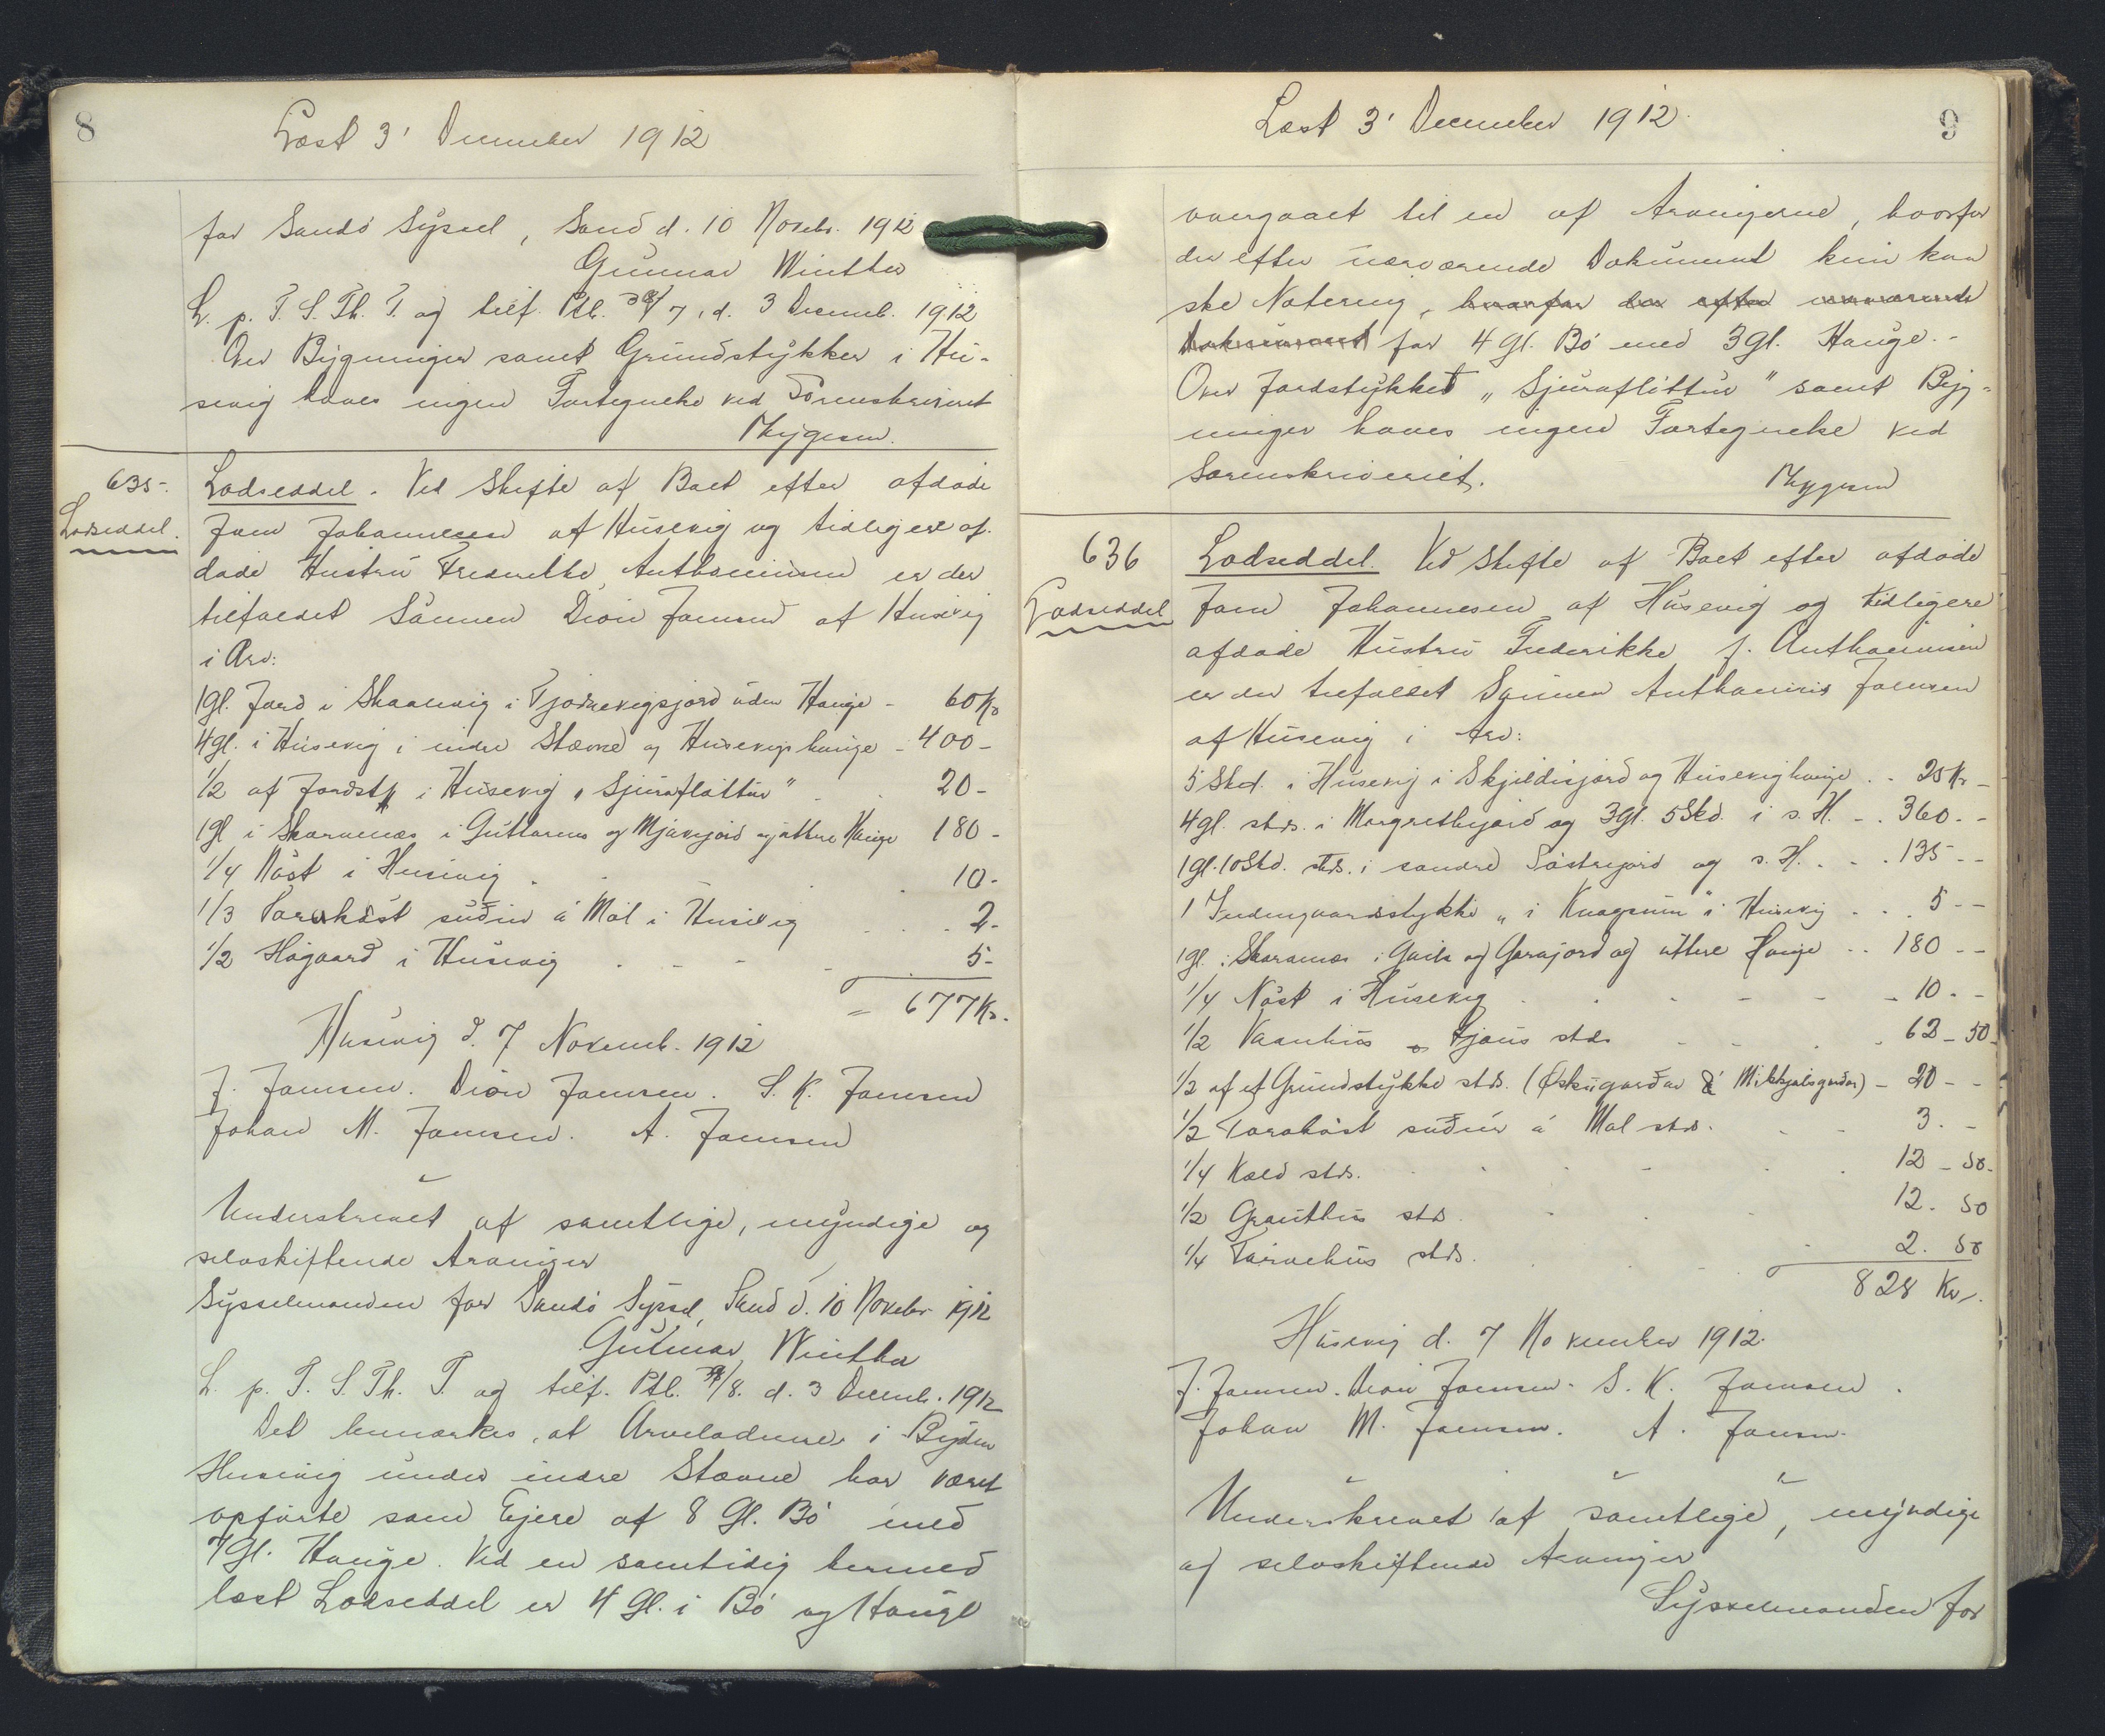 8
Læst 3' December 1912
for Sandö Sÿssel, Sand d. 10 Novbr. 1912
Gunnar Winther
L. p. F. S. Th. T. og tilf. Ptl. 7, d. 3 Decemb. 1912
Over Bygninger samt Grundstÿkker i Hu-
sevig haves ingen Fortegnelse ved Sorenskriveriet
635-
Lodseddel.
Lodseddel. Ved Skifte af Boet efter afdöde
Joen Johannesen af Husevig og tidligere af-
döde Hustru Frederikke Anthoniusen er der
tilfaldet Sönnen Dion Joensen af Husevig
i Arv:
1 gl. Jord i Skaalevig i Tjodnevigsjord uden Hauge - 60 Kr
4 gl. i Husevig i indre Stævne og Husevigs hauge - 400 -
1/2 af Jordstk i Husevig "Sjúrafløttur" - 20 -
1 gl i Skarvenæs i Guttarens og Mjávajord og ÿttere Hauge 180 -
1/4 Nöst i Husevig . 10 -
1/3 Taraköst suður á Mól i Husevig . . . 2 -
1/2 Högaard i Husevig . - - - 5 -
= 677 Kr.
Husevig d. 7 Novemb. 1912
J. Joensen. Dion Joensen. S. K. Joensen
Johan M. Joensen. A. Joensen
Underskrevet af samtlige, myndige og
selvskiftende Arvinger
Sysselmanden for Sandö Syssel, Sand d. 10 Novbr 1912
Gunnar Winther
L. p. F. S. Th. T. og tilf. Ptl. /8. d. 3 Decemb. 1912
Det bemærkes, at Arveladerne i Bygden
Husevig under indre Stævne har været
opförte som Ejere af 8 Gl. Bö med
7 Gl. Hauge. Ved en samtidig hermed
læst Lodseddel er 4 Gl. i Bö og Hauge
9
Læst 3' December 1912.
overgaaet til en af Arvingerne, hvorfor
der efter nærværende Dokument kun kan
ske Notering, hvorfor der efter nærværende
Dokument for 4 gl. Bö med 3 gl. Hauge. -
Over Jordstÿkket "Sjúrafløttur" samt Byg-
ninger haves ingen Fortegnelse ved
Sorenskriveriet.
636
Lodseddel
Lodseddel. Ved Skifte af Boet efter afdöde
Joen Johannesen af Húsevig og tidligere
afdöde Hustru Frederikke f. Anthoniusen
er der tilfaldet Sönnen Anthonius Joensen
af Husevig i Arv:
5 Skd. i Husevig i Skjeldisjord og Husevighauge . - 25 Kr -
4 gl. stds. i Margrethujord og 3 gl. 5 Skd. i s. H. - . 360. -
1 gl. 10 Skd. stds. i søndre Söstrejord og s. H. . - . 135 - -
1 Indengaardsstykke "i Knagsum" i Husevig - . . 5 - -
1 gl. i Skarvenæs i Guils og Garajord og ÿttere Hauge . . 180 - -
1/4 Nöst i Husevig . . - - - - 10. -
1/2 Vaanhus o Hjaus stds - - . . 62 - 50.
1/2 af et Grundstÿkke stds. (Øskugarður á Mikkjalsgarðar) - 20 - -
1/2 Taraköst suður á Mól stds. - - 3. -
1/4 Kæld stds. . . . - . . 12 - 50.
1/2 Grauthus stds . . . 12. 50
1/4 Tórvehus stds. . . - 2. 50
828 Kr.
Husevig d. 7 November 1912.
J. Joensen. Dion Joensen. S. K. Joensen.
Johan M. Joensen. A. Joensn.
Underskrevet af samtlige, myndige
og selvskiftende Arvinger
Sysselmanden for